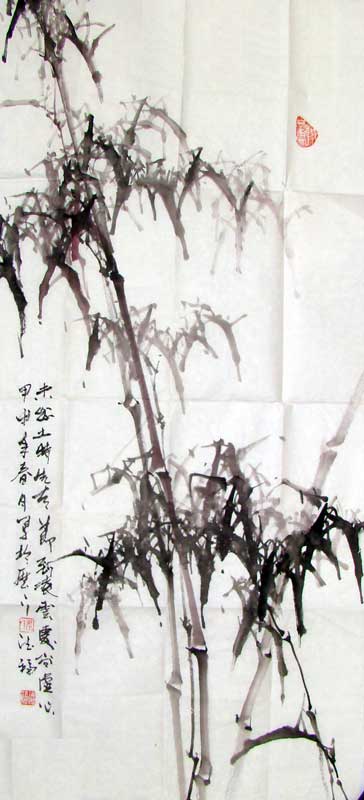 未出土時先有節到凌雲處尚虛心
甲申年春月寫於